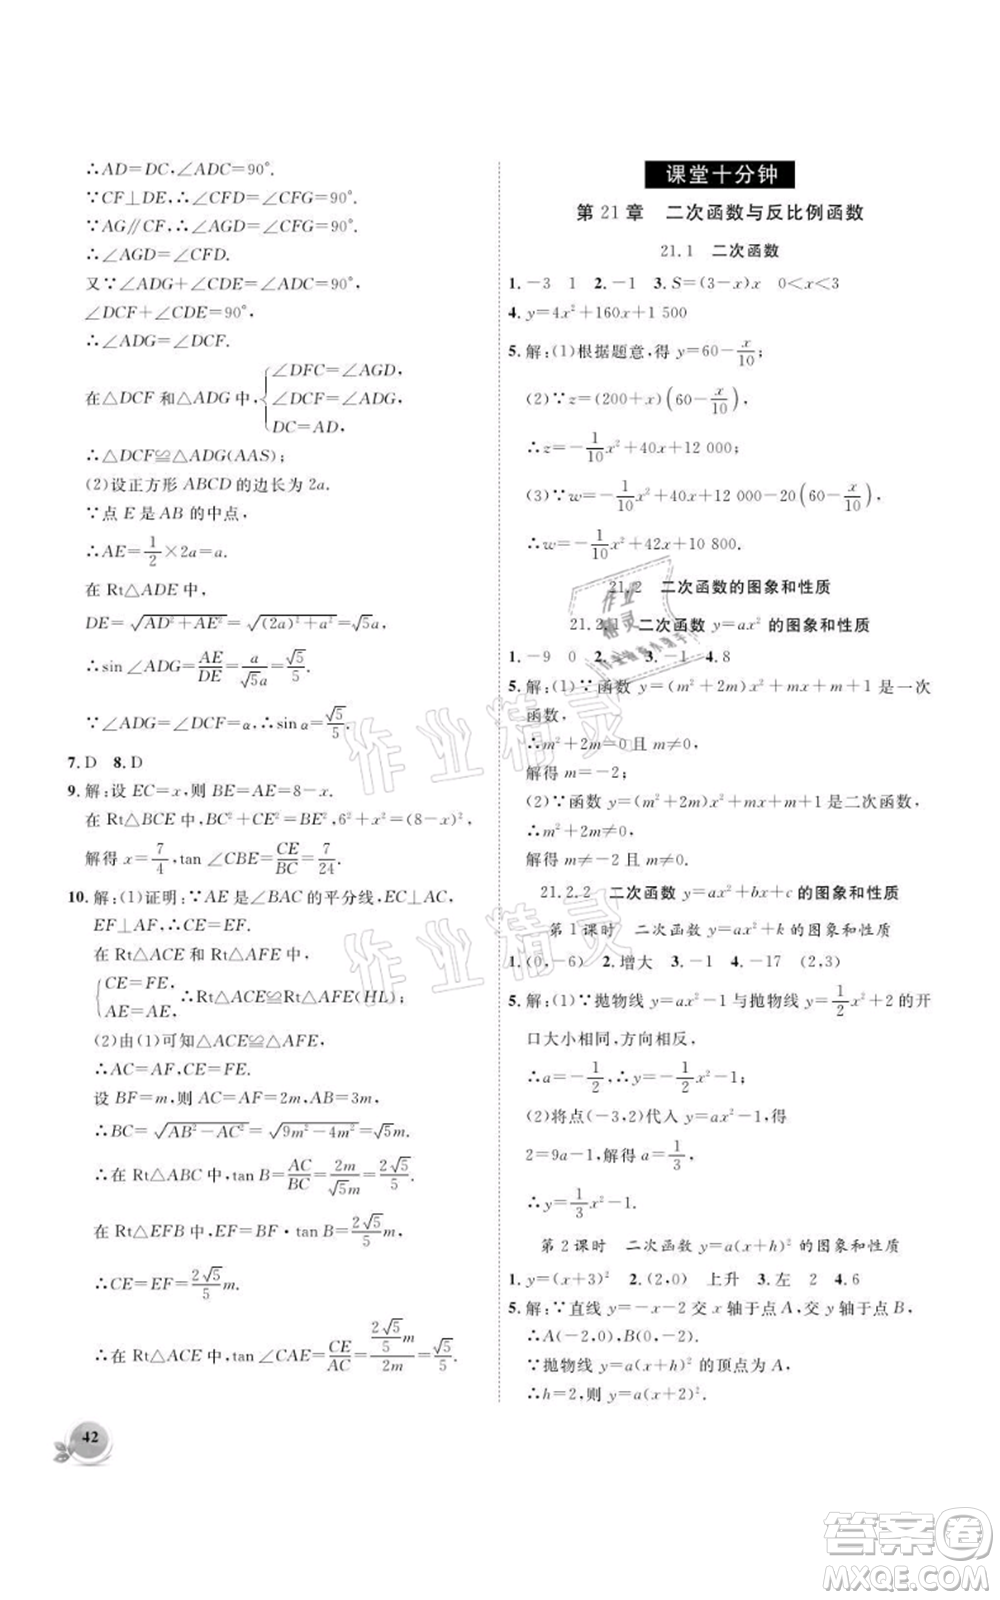 ∴AD=DC,∠ADC=90°.
∵CF⊥DE,∴∠CFD=∠CFG=90°.
∵AG∥CF,∴∠AGD=∠CFG=90°.
∴∠AGD=∠CFD.
又∵∠ADG+∠CDE=∠ADC=90°,
∠DCF+∠CDE=90°,
∴∠ADG=∠DCF.
在△DCF和△ADG中,{∠DFC=∠AGD,
∠DCF=∠ADG,
DC=AD,
∴△DCF≌△ADG(AAS);
(2)设正方形ABCD的边长为2a.
∵点E是AB的中点,
∴AE=1/2×2a=a.
在Rt△ADE中,
DE=√(AD²+AE²)=√((2a)²+a²)=√5a,
∴sin∠ADG=AE/DE=a/(√5a)=√5/5.
∵∠ADG=∠DCF=α,∴sinα=√5/5.
7.D 8.D
9.解:设EC=x,则BE=AE=8-x.
在Rt△BCE中,BC²+CE²=BE²,6²+x²=(8-x)²,
解得x=7/4,tan∠CBE=CE/BC=7/24.
10.解:(1)证明:∵AE是∠BAC的平分线,EC⊥AC,
EF⊥AF,∴CE=EF.
在Rt△ACE和Rt△AFE中,
{CE=FE,
AE=AE,∴Rt△ACE≌Rt△AFE(HL);
(2)由(1)可知△ACE≌△AFE,
∴AC=AF,CE=FE.
设BF=m,则AC=AF=2m,AB=3m.
∴BC=√(AB²-AC²)=√(9m²-4m²)=√5m.
∴在Rt△ABC中,tan B=AC/BC=2m/(√5m)=2√5/5.
在Rt△EFB中,EF=BF·tan B=(2√5/5)m,
∴CE=EF=(2√5/5)m.
∴在Rt△ACE中,tan∠CAE=CE/AC=((2√5/5)m)/(2m)=√5/5.
42
课堂十分钟
第21章 二次函数与反比例函数
21.1 二次函数
1.-3 1 2.-1 3.S=(3-x)x 0<x<3
4.y=4x²+160x+1 500
5.解:(1)根据题意,得y=60-x/10;
(2)∵z=(200+x)(60-x/10),
∴z=-1/10x²+40x+12 000;
(3)∵w=-1/10x²+40x+12 000-20(60-x/10),
∴w=-1/10x²+42x+10 800.
21.2 二次函数的图象和性质
21.2.1 二次函数y=ax²的图象和性质
1.-9 0 2. 3.-1 4.8
5.解:(1)∵函数y=(m²+2m)x²+mx+m+1是一次
函数,
∴m²+2m=0且m≠0,
解得m=-2;
(2)∵函数y=(m²+2m)x²+mx+m+1是二次函数,
∴m²+2m≠0,
解得m≠-2且m≠0.
21.2.2 二次函数y=ax²+bx+c的图象和性质
第1课时 二次函数y=ax²+k的图象和性质
1.(0,-6) 2.增大 3.-1 4.-17 (2,3)
5.解:(1)∵抛物线y=ax²-1与抛物线y=1/2x²+2的开
口大小相同,方向相反,
∴a=-1/2,∴y=-1/2x²-1;
(2)将点(-3,2)代入y=ax²-1,得
2=9a-1,解得a=1/3,
∴y=1/3x²-1.
第2课时 二次函数y=a(x+h)²的图象和性质
1.y=(x+3)² 2.(2,0) 上升 3.左 2 4.6
5.解:∵直线y=-x-2交x轴于点A,交y轴于点B,
∴A(-2,0),B(0,-2).
∵抛物线y=a(x+h)²的顶点为A,
∴h=2,则y=a(x+2)².
作业精灵
作业精灵
作业
精灵
答案卷
MXQE.COM